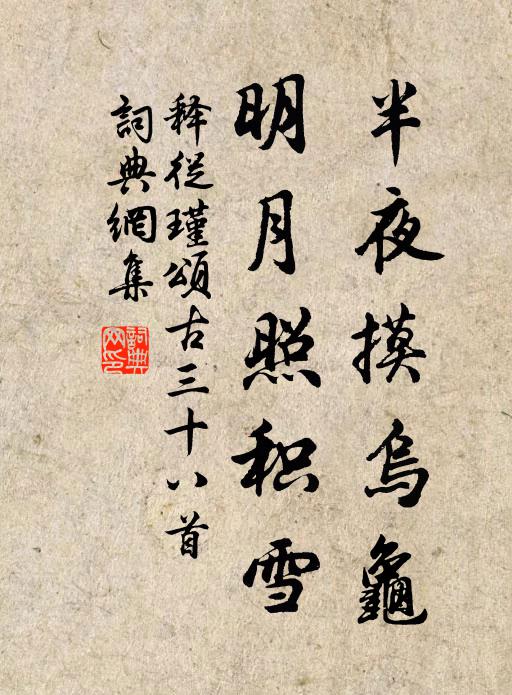 半夜摸烏龜
明月照积雪
释從瑾頌古三十八首
詞典網集
詞典网印